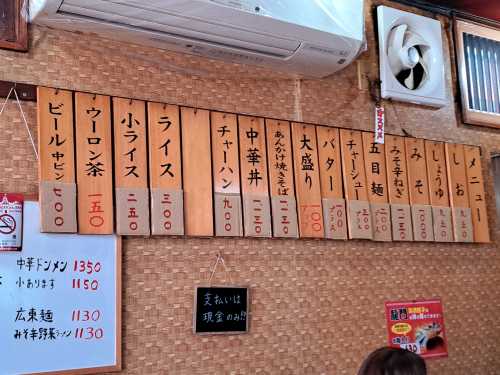 メニュー
しお 九五〇
しょうゆ 九五〇
みそ 一〇〇〇
みそ辛ねぎ
五目麺
チャーシュー
バター 一〇〇
大盛り 一〇〇
あんかけ焼きそば 一二三〇
中華丼 一二三〇
チャーハン 九〇〇
ライス 三〇〇
小ライス 二五〇
ウーロン茶 一五〇
ビール 中ビン 七〇〇
オススメ
中華ドンメン 1350
小あります 1150
広東麺 1130
みそ辛野菜ラーメン 1130
支払いは
現金のみ!!
龍門